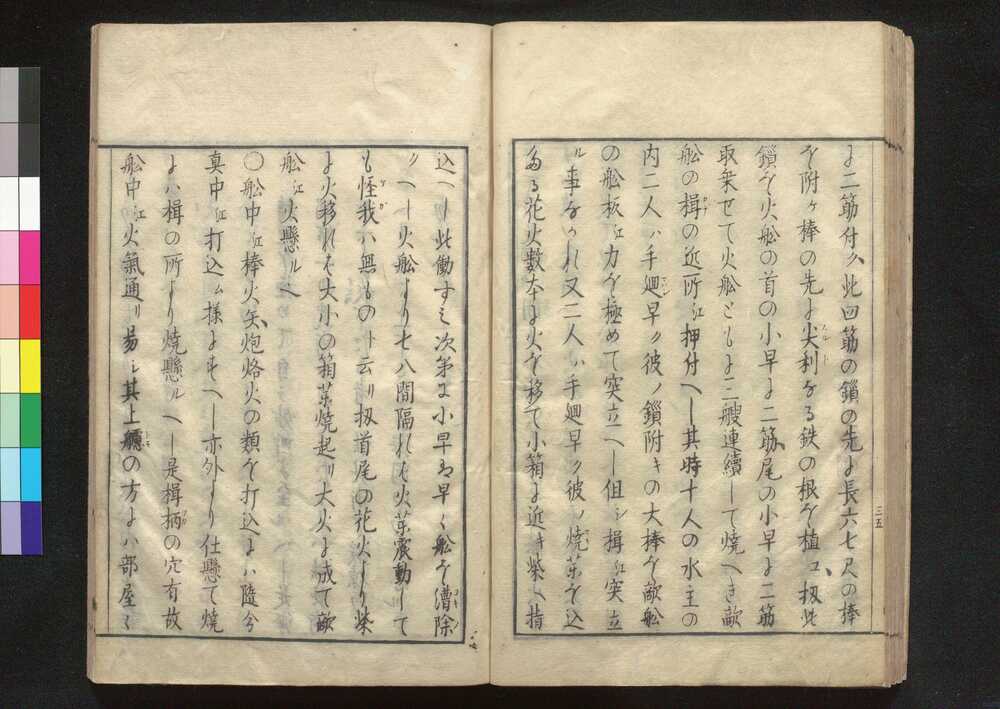 に二筋付ク此四筋の鎖の先に長六七尺の棒
を附ケ棒の先に尖利なる鉄の根を植ユ扨此
鎖を火舩の首の小早に二筋尾の小早に二筋
取乗せて火舩ともに三艘連續して焼へき敵
舩の楫の近所江押付へし其時十人の水主の
内二人ハ手廻早ク彼ノ鎖附キの大棒を敵舩
の舩板江力を極めて突立へし但シ楫江突立
ル事なかれ又二人ハ手廻早ク彼ノ焼薬を込
たる花火数本に火を移て小箱に近キ柴へ指
込へし此働すミ次第に小早を早く舩を漕除
クへし火舩より七八間隔れは火薬震動して
も怪我ハ無ものト云リ扨首尾の花火より柴
に火移れは大小の箱薬焼起リ大火に成て敵
舩江火懸ル也
〇舩中江棒火矢炮烙火の類を打込にハ隨分
真中江打込ム様にすへし亦外より仕懸て焼
にハ楫の所より焼懸ルへし是楫柄の穴有故
舩中江火氣通リ易シ其上艫の方にハ部屋く
三五